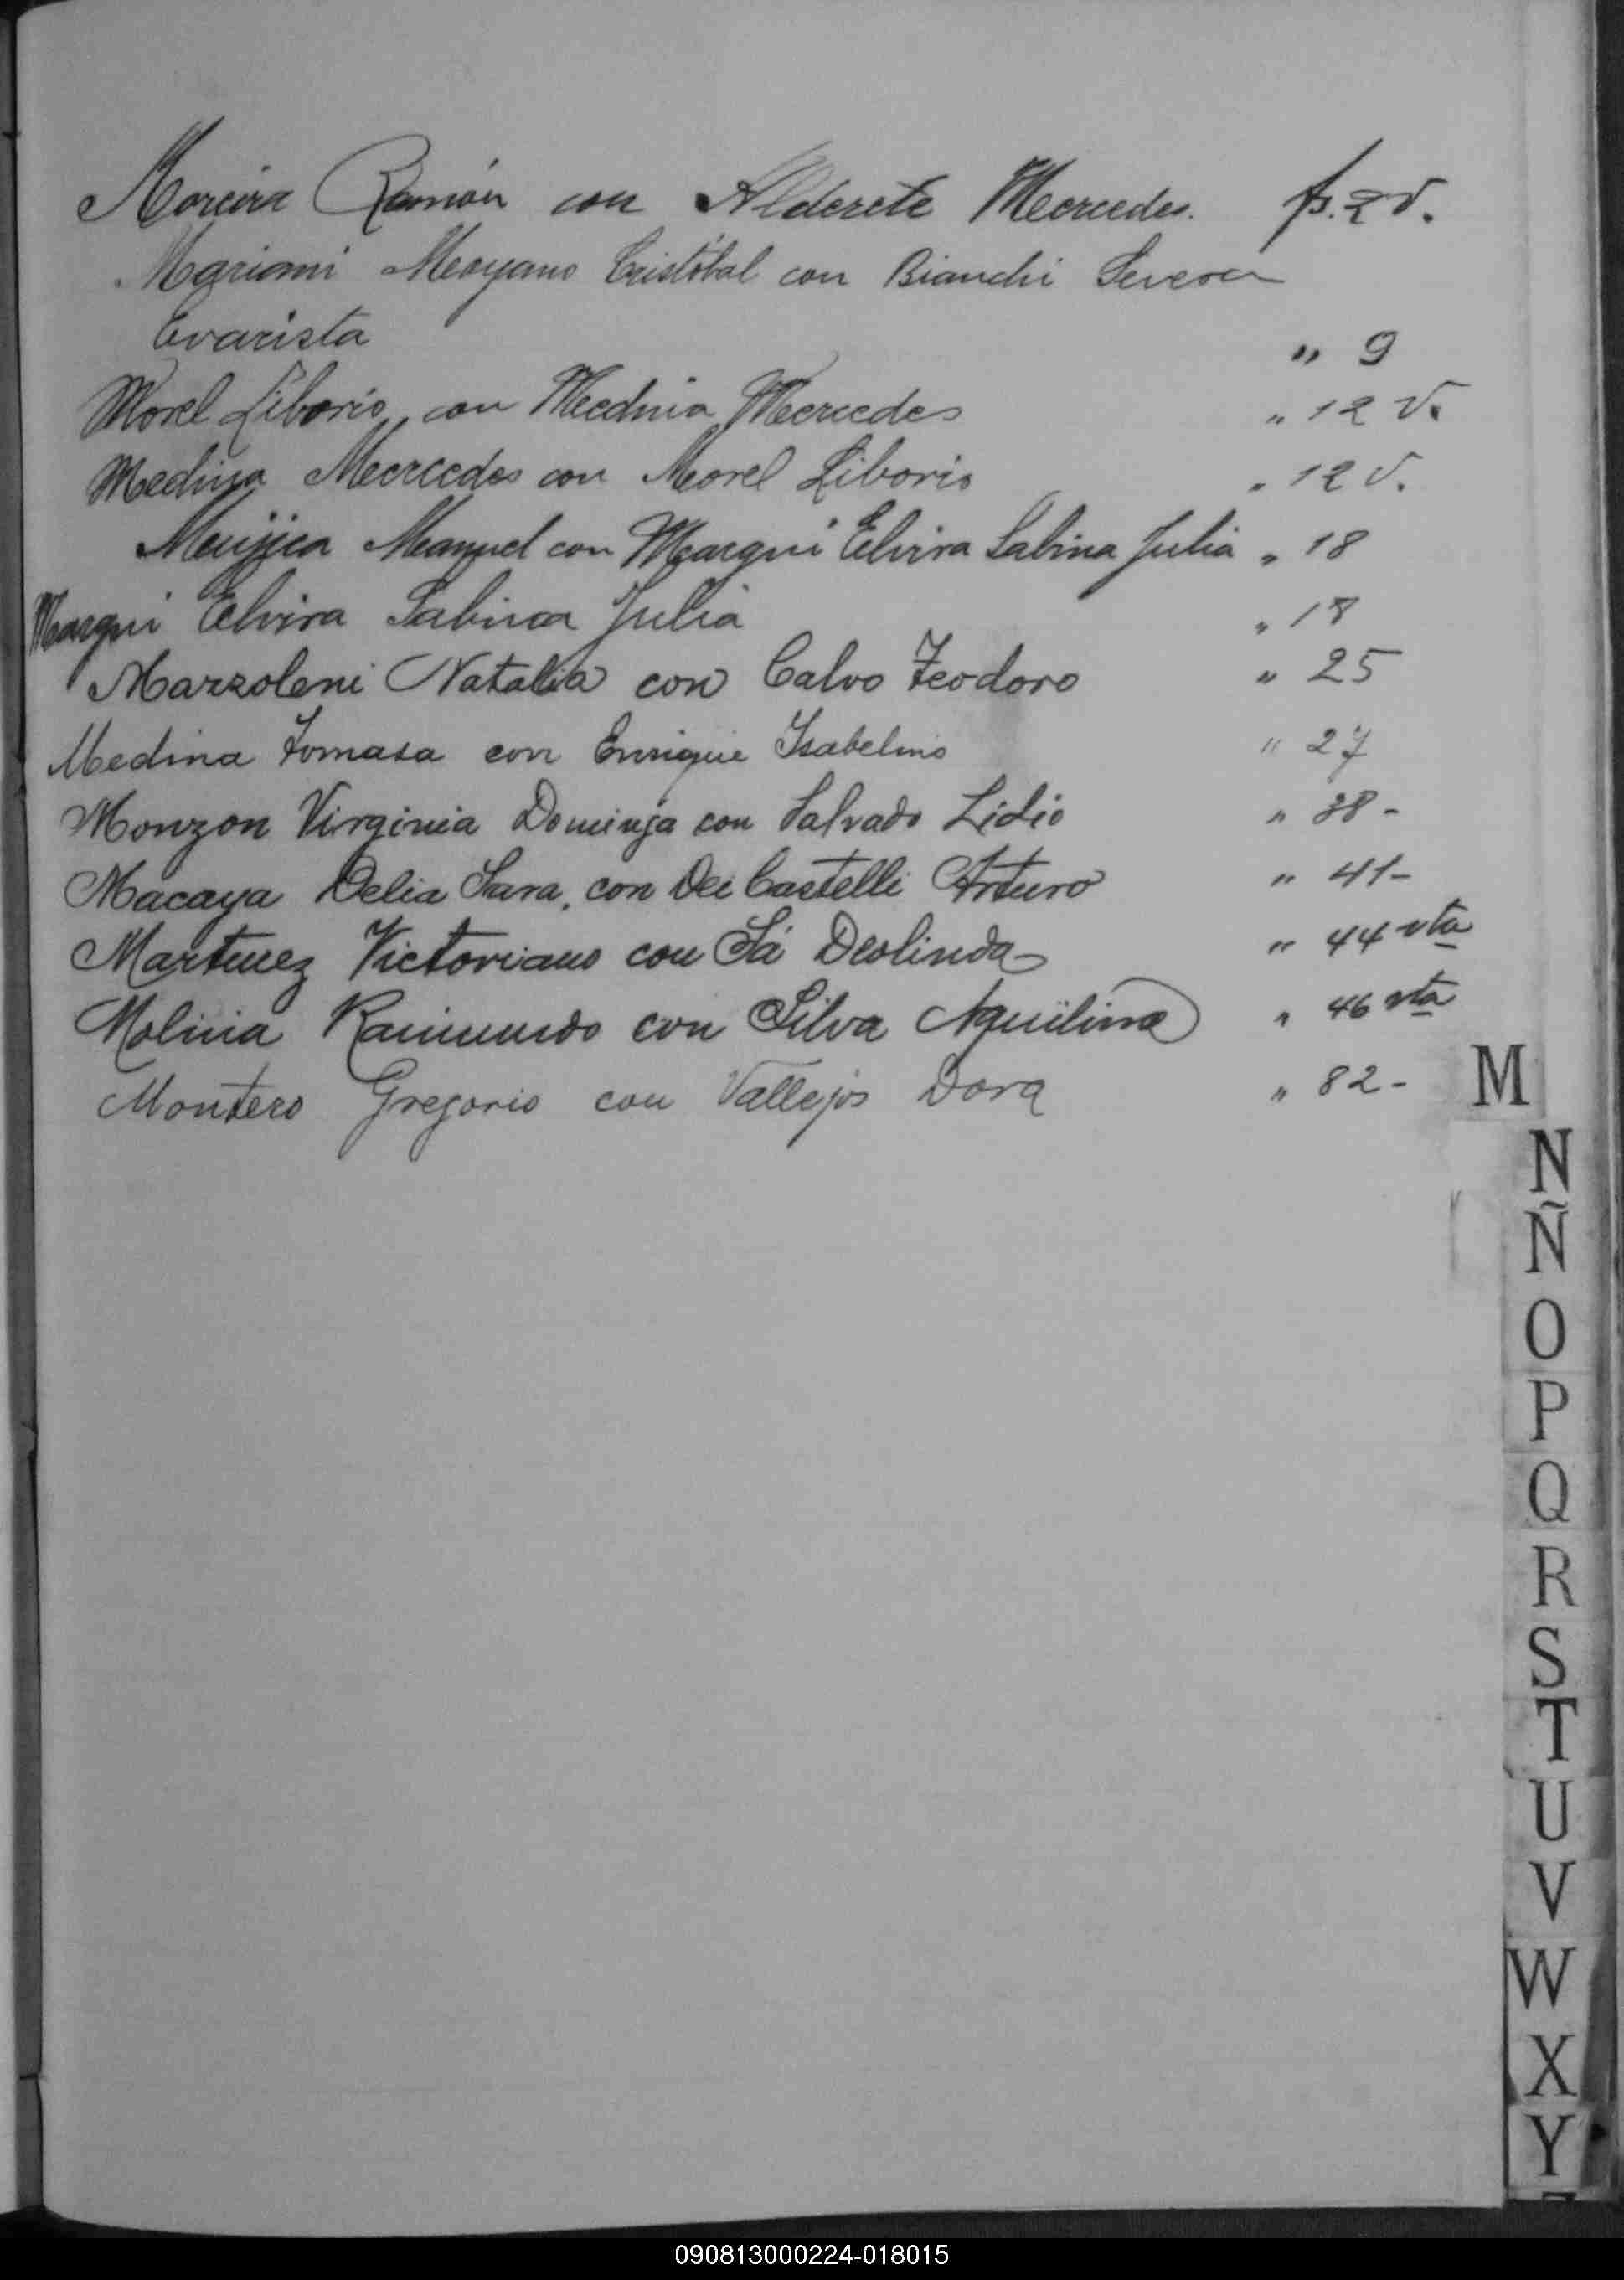 Moreira Ramón con Alderete Mercedes. fs. 2 v.
Mariani Moyano Cristóbal con Bianchi Severa
Evarista " 9
Morel Liborio con Medina Mercedes " 12 v.
Medina Mercedes con Morel Liborio " 12 v.
Mujica Manuel con Margni Elvira Sabina Julia " 18
Margni Elvira Sabina Julia " 18
Marzoleni Natalia con Calvo Teodoro " 25
Medina Tomasa con Enrique Isabelino " 27
Monzon Virginia Dominga con Salvado Lidio " 38 -
Macaya Delia Sara, con Dei Castelli Arturo " 41 -
Martinez Victoriano con Sá Deolinda " 44 vta
Molina Raimundo con Silva Aquilina " 46 vta
Montero Gregorio con Vallejos Dora " 82 -
M
N
Ñ
O
P
Q
R
S
T
U
V
W
X
Y
090813000224-018015